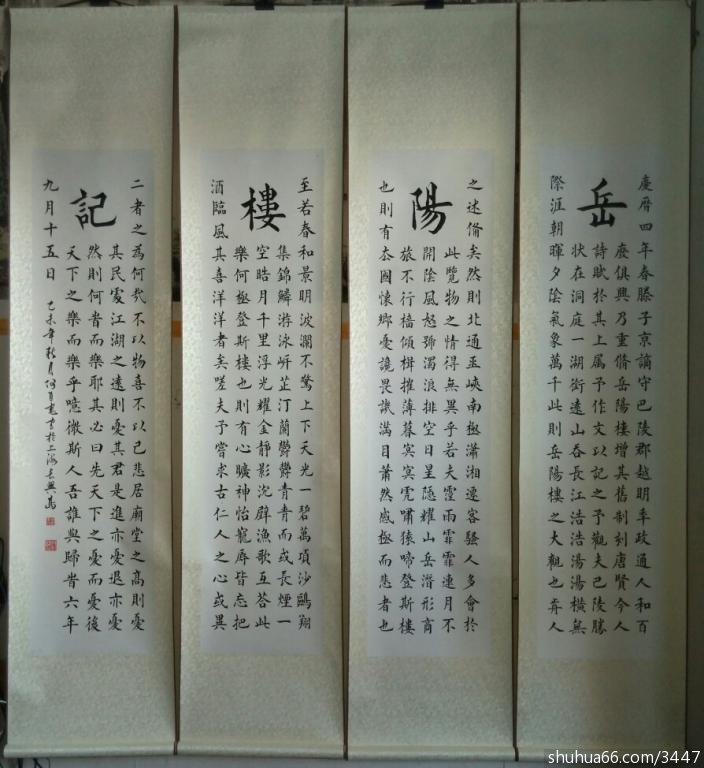 岳
慶曆四年春滕子京謫守巴陵郡越明年政通人和百
廢俱興乃重脩岳陽樓增其舊制刻唐賢今人
詩賦於其上屬予作文以記之予觀夫巴陵勝
狀在洞庭一湖銜遠山吞長江浩浩湯湯橫無
際涯朝暉夕陰氣象萬千此則岳陽樓之大觀也前人
陽
之述備矣然則北通巫峽南極瀟湘遷客騷人多會於
此覽物之情得無異乎若夫霪雨霏霏連月不
開陰風怒號濁浪排空日星隱耀山岳潛形商
旅不行檣傾楫摧薄暮冥冥虎嘯猿啼登斯樓
也則有去國懷鄉憂讒畏譏滿目蕭然感極而悲者也
樓
至若春和景明波瀾不驚上下天光一碧萬頃沙鷗翔
集錦鱗游泳岸芷汀蘭鬱鬱青青而或長煙一
空皓月千里浮光耀金靜影沉璧漁歌互答此
樂何極登斯樓也則有心曠神怡寵辱皆忘把
酒臨風其喜洋洋者矣嗟夫予嘗求古仁人之心或異
記
二者之為何哉不以物喜不以己悲居廟堂之高則憂
其民處江湖之遠則憂其君是進亦憂退亦憂
然則何時而樂耶其必曰先天下之憂而憂後
天下之樂而樂乎噫微斯人吾誰與歸時六年
九月十五日 乙未年秋月 書於上海長興島
shuhua66.com/3447